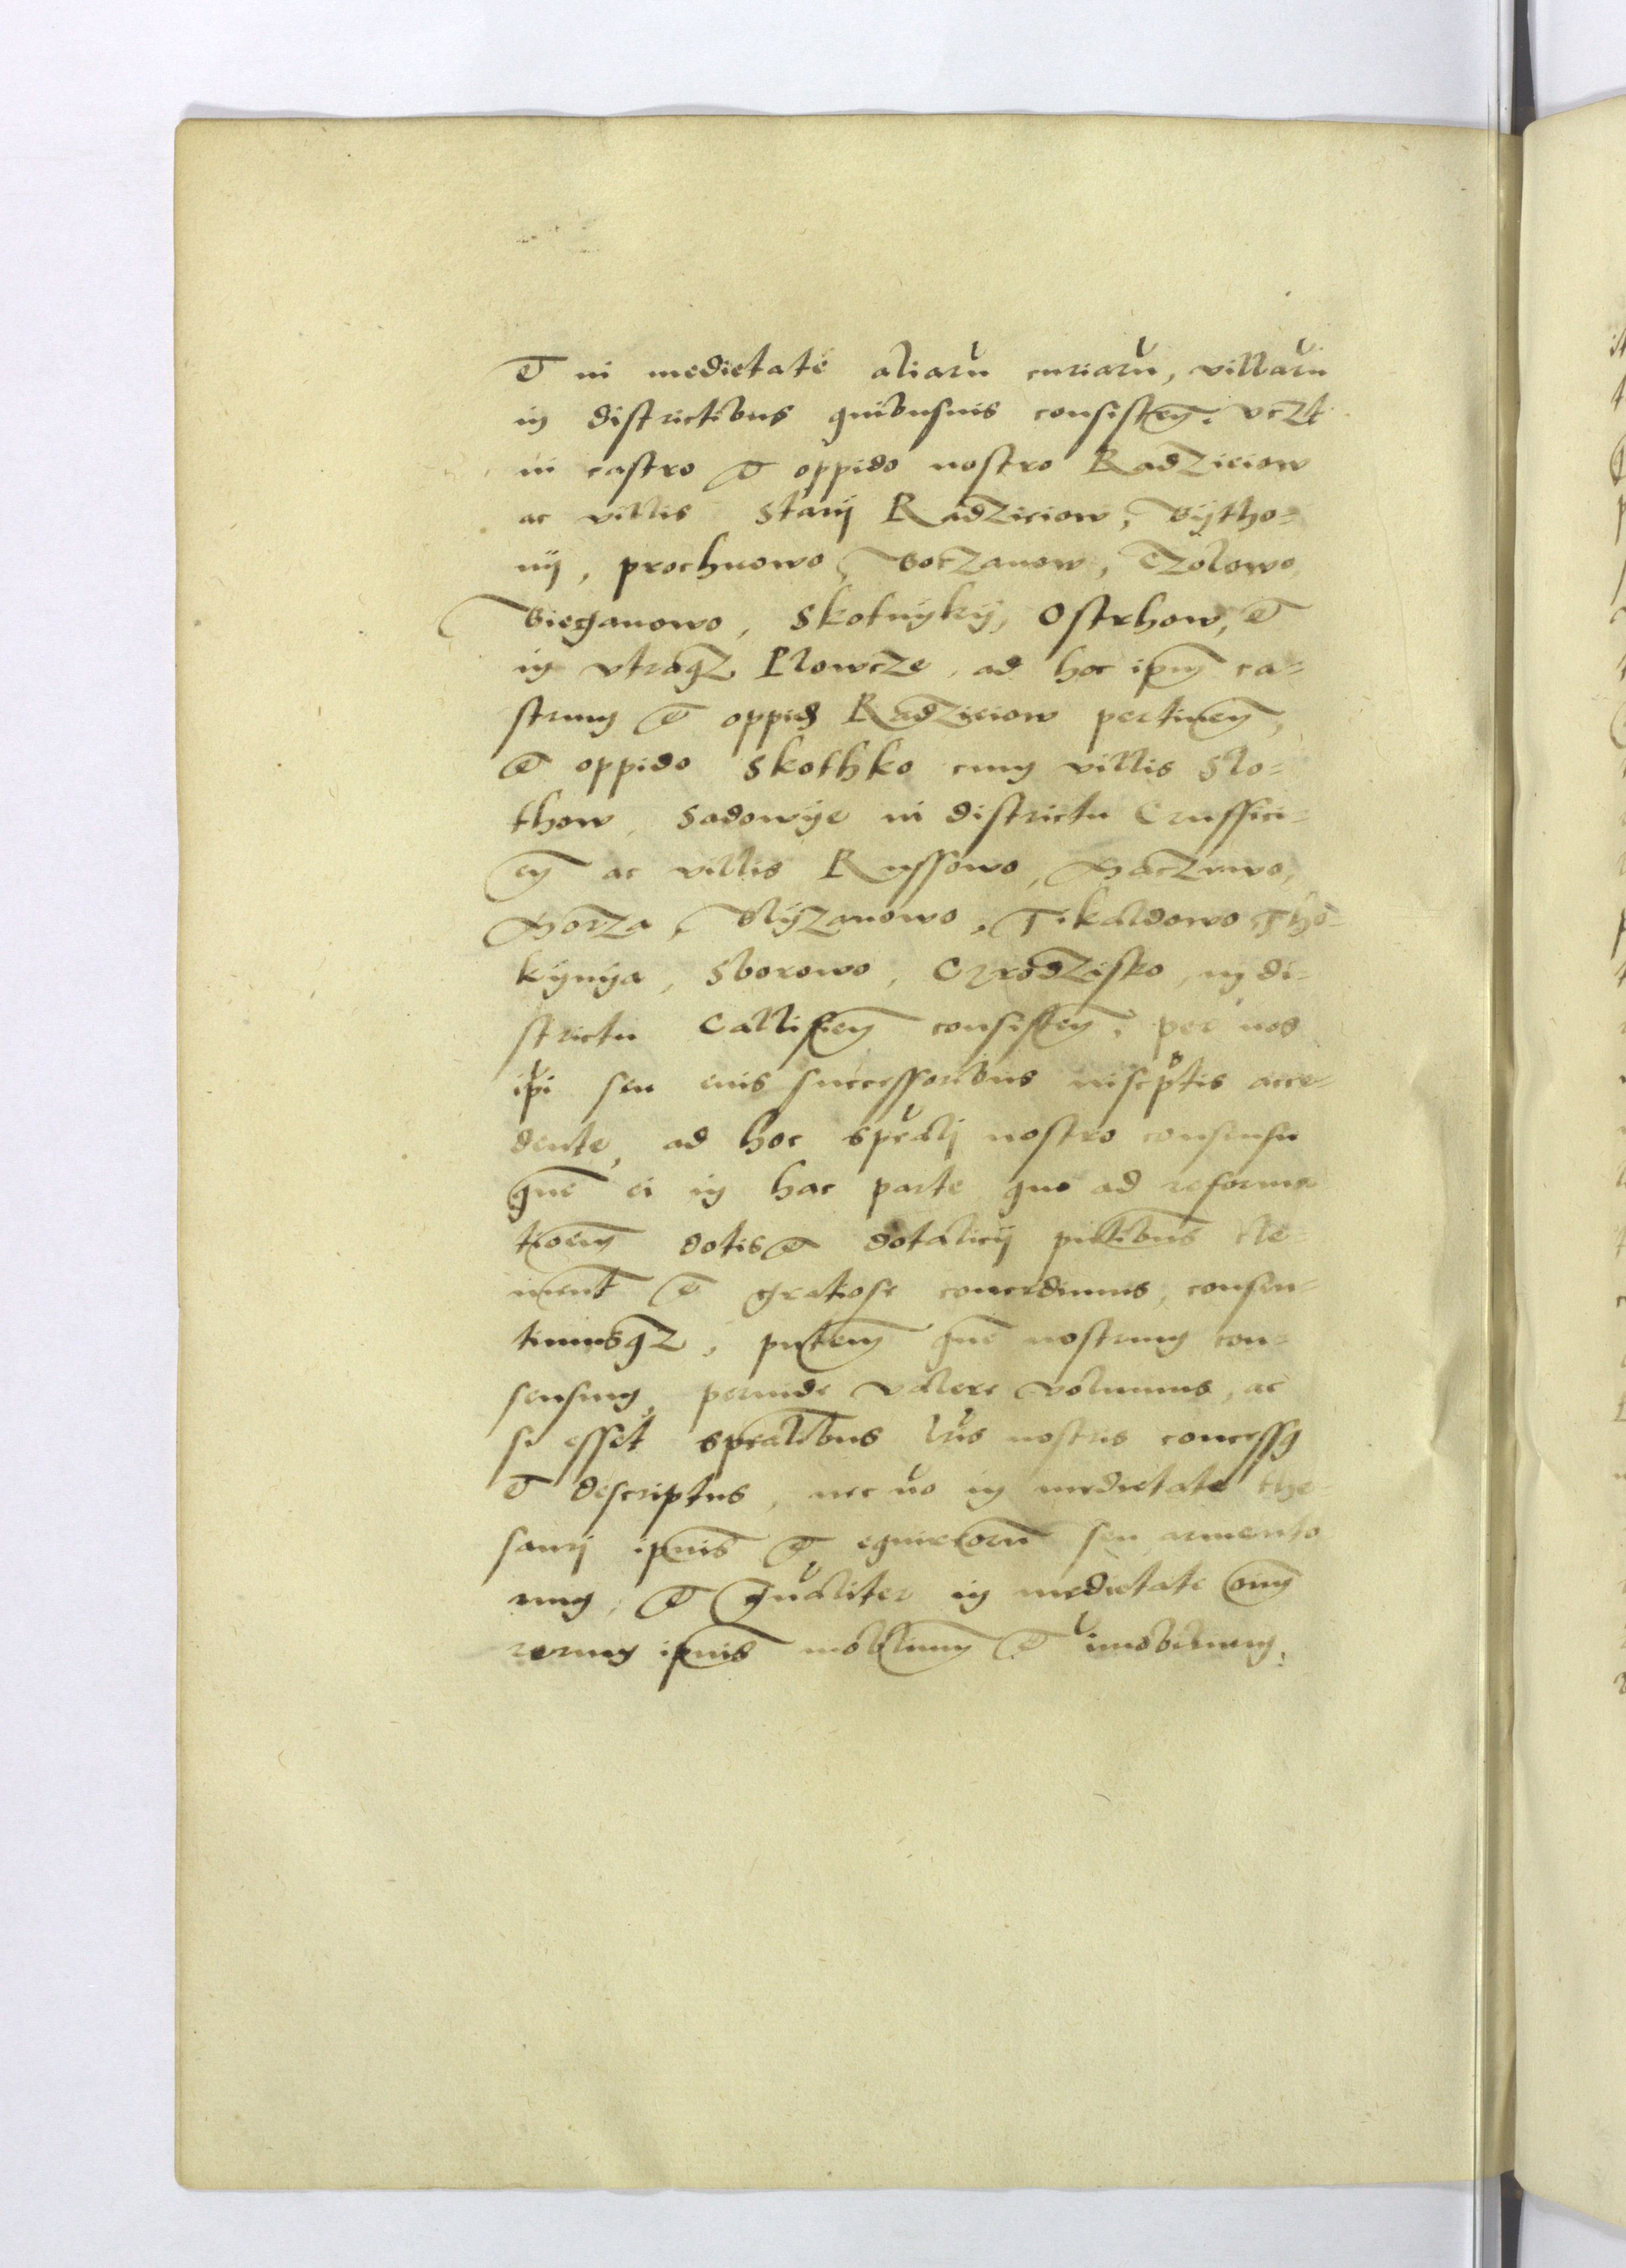 et in medietate aliarū curiarū, villarū
in districtibus quibusuis consisteñ. vczt
in castro et oppido nostro Radzieiow
ac villis Starij Radzieiow, Bijtho=
nij, prochnowo, Boczanow, Czolowo,
Bieganowo, Skotnijkij, Ostrhow, et
in vtraqz Plowcze, ad hoc ipm̄ ca=
strum et oppid Radzieiow pertineñ,
et oppido Skothko cum villis Slo=
thow, Sadowije in districtu Crussici=
eñ ac villis Russowo, Maczewo,
Morza, Blijzanowo, Tikaldowo, Tho=
kijnija, Sborowo, Grodzisko, in di=
strictu Callisieñ consisteñ, per nos
ipi seu eius successoribus inscptis acce=
dente, ad hoc spcalj nostro consensu
quē ei in hac parte quo ad reforma
tioem dotis et dotalicij pn̄tibus cle=
ment̄ et gratiose concedimus, consen=
timusqz, pn̄tem quē nostrum con=
sensum, perinde valere volumus, ac
si esset spcalibus lr̄is nostris concessg
et descriptus, nec nō in medietate the=
saurj ipius et equireorū seu armento
rum, et equaliter in medietate oim
rerum ipius mobilium et imobilium,